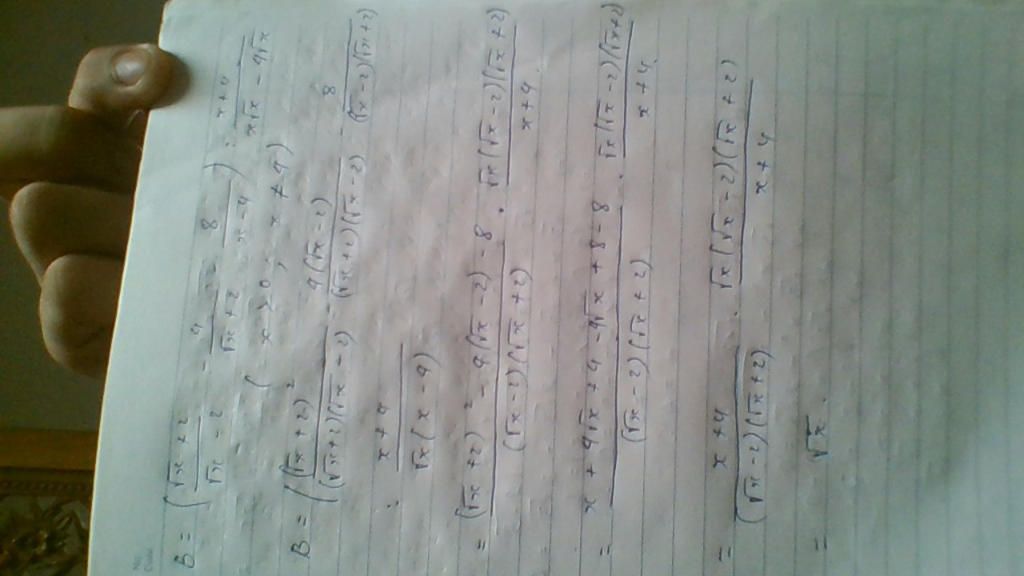 No.
Date
B = ( (√x + 2)/(√x - 2) - 4/(√x + 2) - 8/(x - 4) ) : (x + 4)/(x√x - 4√x)
( x > 0 ; x ≠ 4 )
B = ( (√x + 2)²/((√x + 2)(√x - 2)) - 4(√x - 2)/((√x + 2)(√x - 2)) - 8/((√x - 2)(√x + 2))
: (x + 4)/(√x(x - 4))
= ((√x + 2)² - 4(√x - 2) - 8)/((√x - 2)(√x + 2)) . √x(√x - 2)(√x + 2)/(x + 4)
= (x + 4√x + 4 - 4√x + 8 - 8)/((√x - 2)(√x + 2)) . √x(√x - 2)(√x + 2)/(x + 4)
= (x + 4)/((√x - 2)(√x + 2)) . √x(√x - 2)(√x + 2)/(x + 4)
= √x .